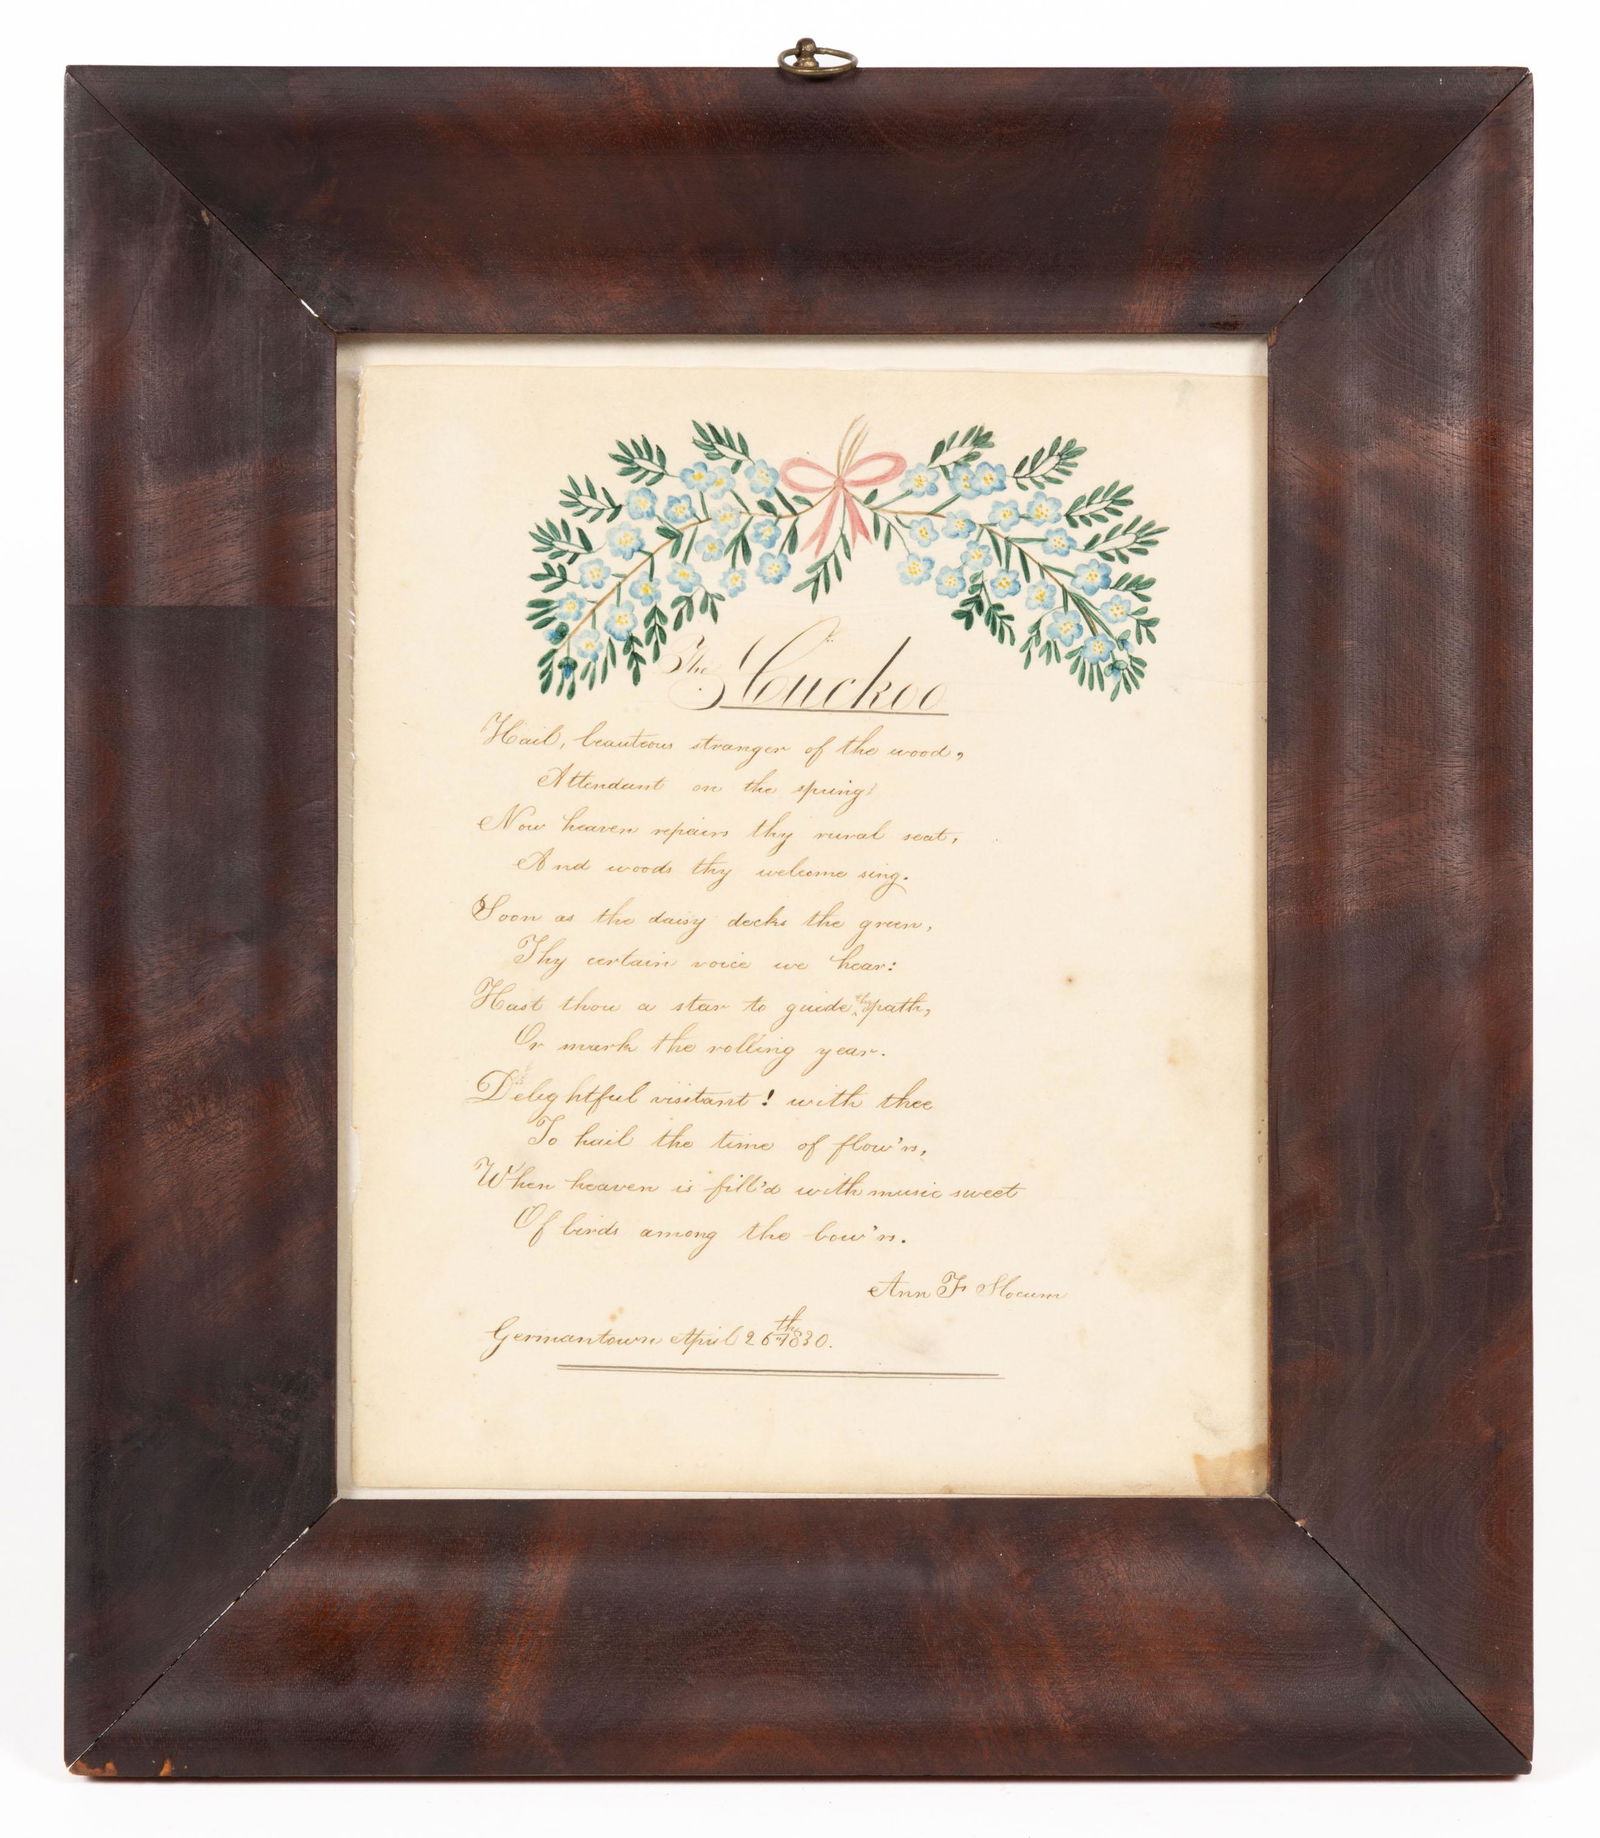 The Cuckoo
Hail, beauteous stranger of the wood,
Attendant on the spring!
Now heaven repairs thy rural seat,
And woods thy welcome sing.
Soon as the daisy decks the green,
Thy certain voice we hear:
Hast thou a star to guide thy path,
Or mark the rolling year.
Delightful visitant! with thee
To hail the time of flow'rs,
When heaven is fill'd with music sweet
Of birds among the bow'rs.
Ann F Slocum
Germantown April 26th 1830.